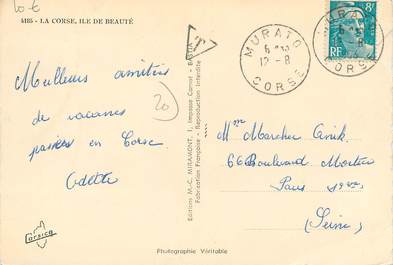 10 €
4185 - LA CORSE, ILE DE BEAUTÉ
T
MURATO
6 30
12 - 8
CORSE
MURATO
12 - 8
CORSE
8F
RF
Meilleurs amitiés
de vacances
passées en Corse
Odette
20
Editions M.-C. MIRAMONT, 1, Impasse Carnot - BASTIA
Fabrication Française - Reproduction Interdite
Mme Marcher
66 Boulevard Mortier
Paris
(Seine)
Corsica
Photographie Véritable